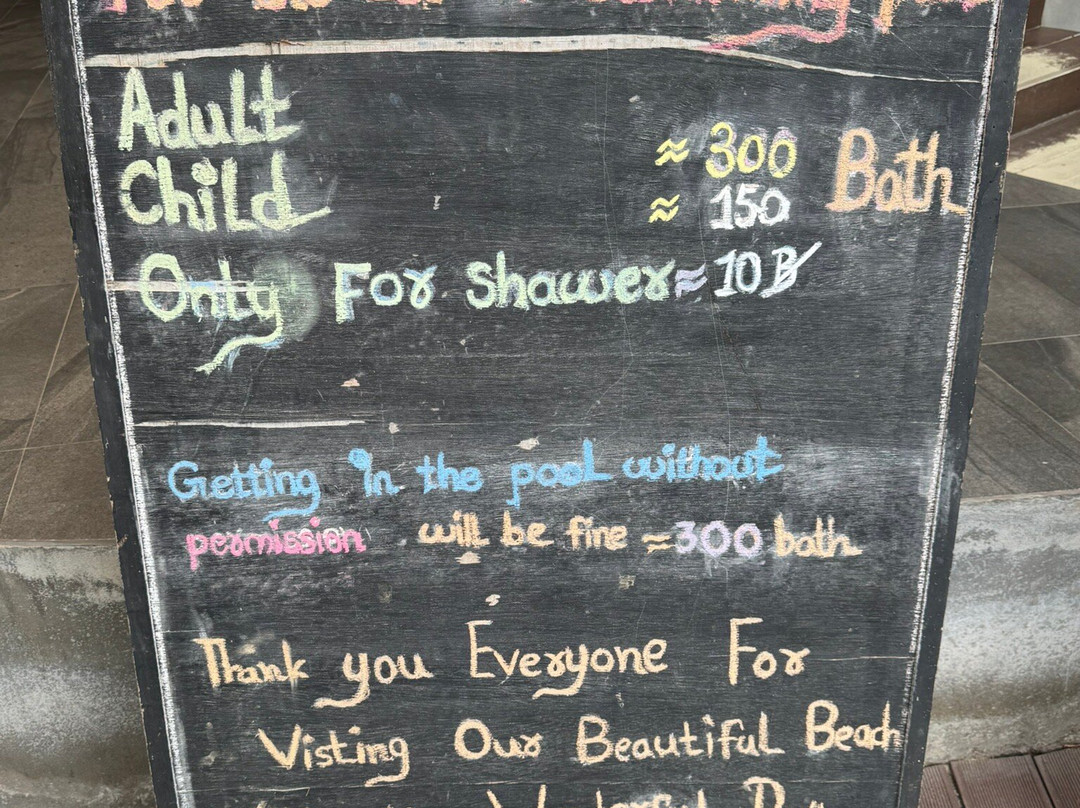 Adult ≈ 300 Bath
Child ≈ 150
Only For shawer ≈ 10 B
Getting in the pool without
permission will be fine = 300 bath
Thank you Everyone For
Visting Our Beautiful Beach